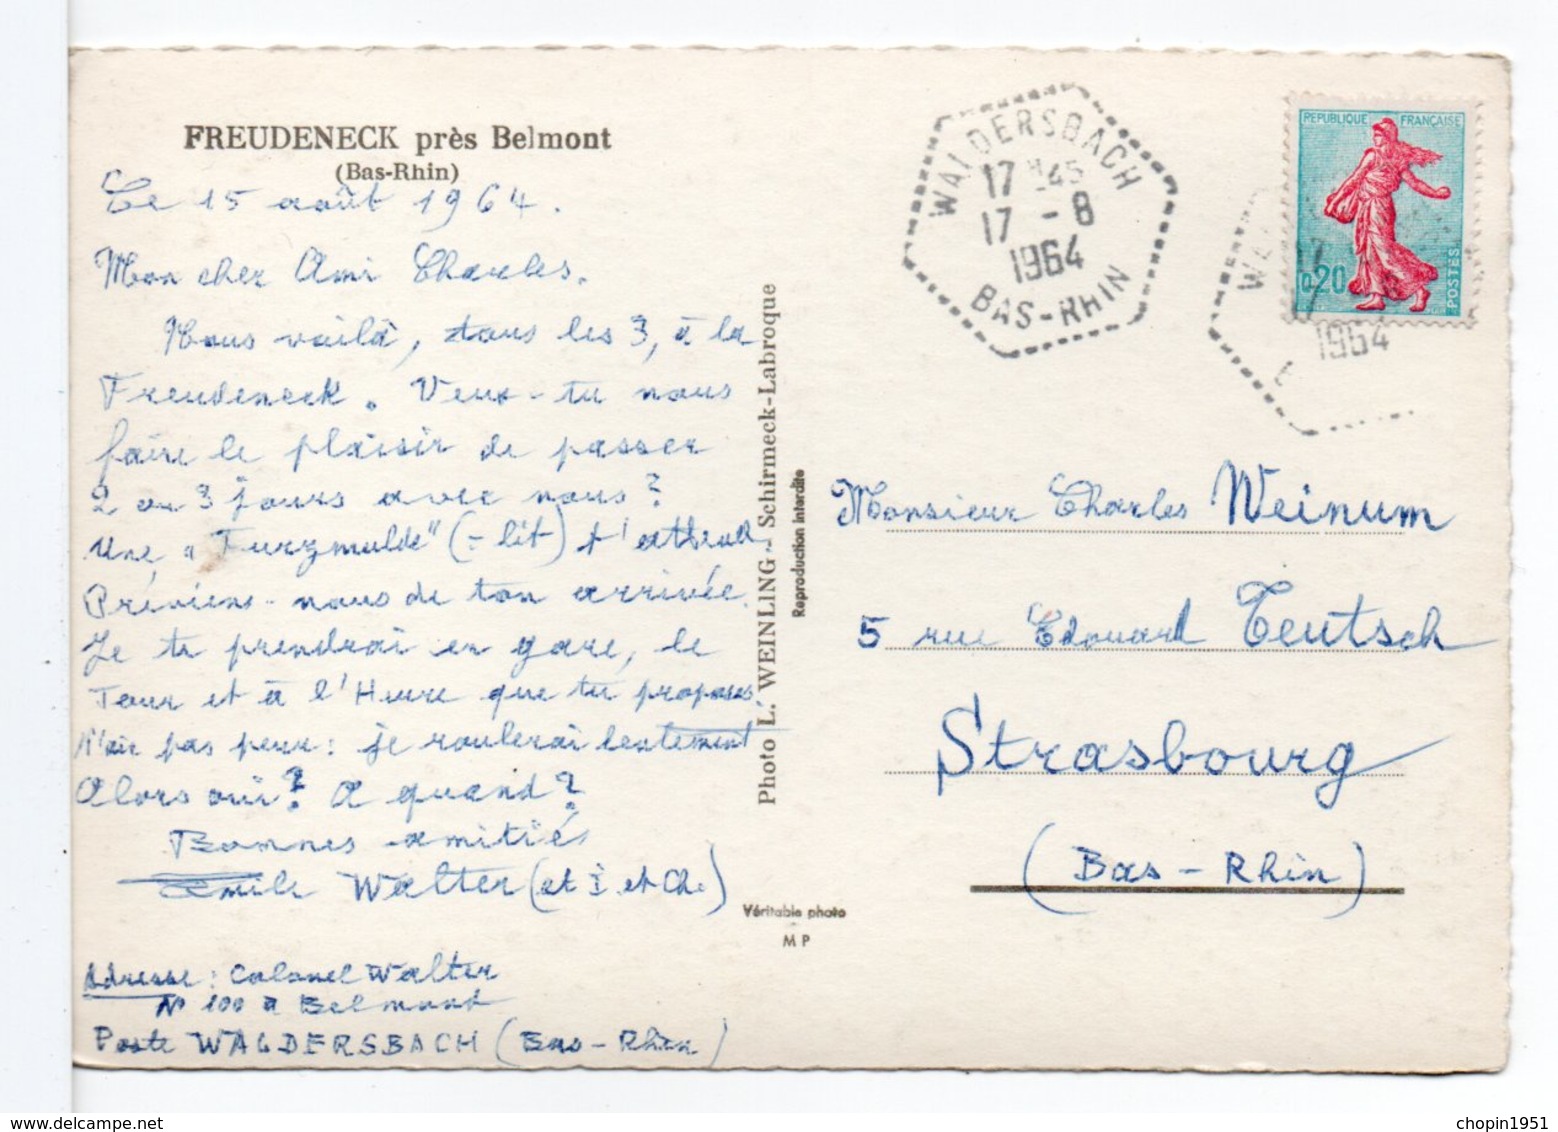 FREUDENECK près Belmont
(Bas-Rhin)
Le 15 août 1964.
Mon cher Ami Charles.
Nous voilà, tous les 3, à la
Freudeneck. Veux-tu nous
faire le plaisir de passer
2 ou 3 jours avec nous?
Une „Furzmulde" (= lit) t'attend.
Préviens-nous de ton arrivée.
Je te prendrai en gare, le
Jour et à l'Heure que tu proposes
N'aie pas peur: je roulerai lentement
Alors oui? A quand?
Bonnes amitiés
Emile Walter (et I. et Ch.)
Adresse: Colonel Walter
N° 100 à Belmont
Poste WALDERSBACH (Bas-Rhin)
Photo L. WEINLING - Schirmeck-Labroque
Reproduction interdite
Véritable photo
M P
WALDERSBACH
17 H45
17 - 8
1964
BAS-RHIN
REPUBLIQUE FRANÇAISE
0,20
POSTES
WA
17
1964
Monsieur Charles Weinum
5 rue Edouard Teutsch
Strasbourg
(Bas-Rhin)
chopin1951